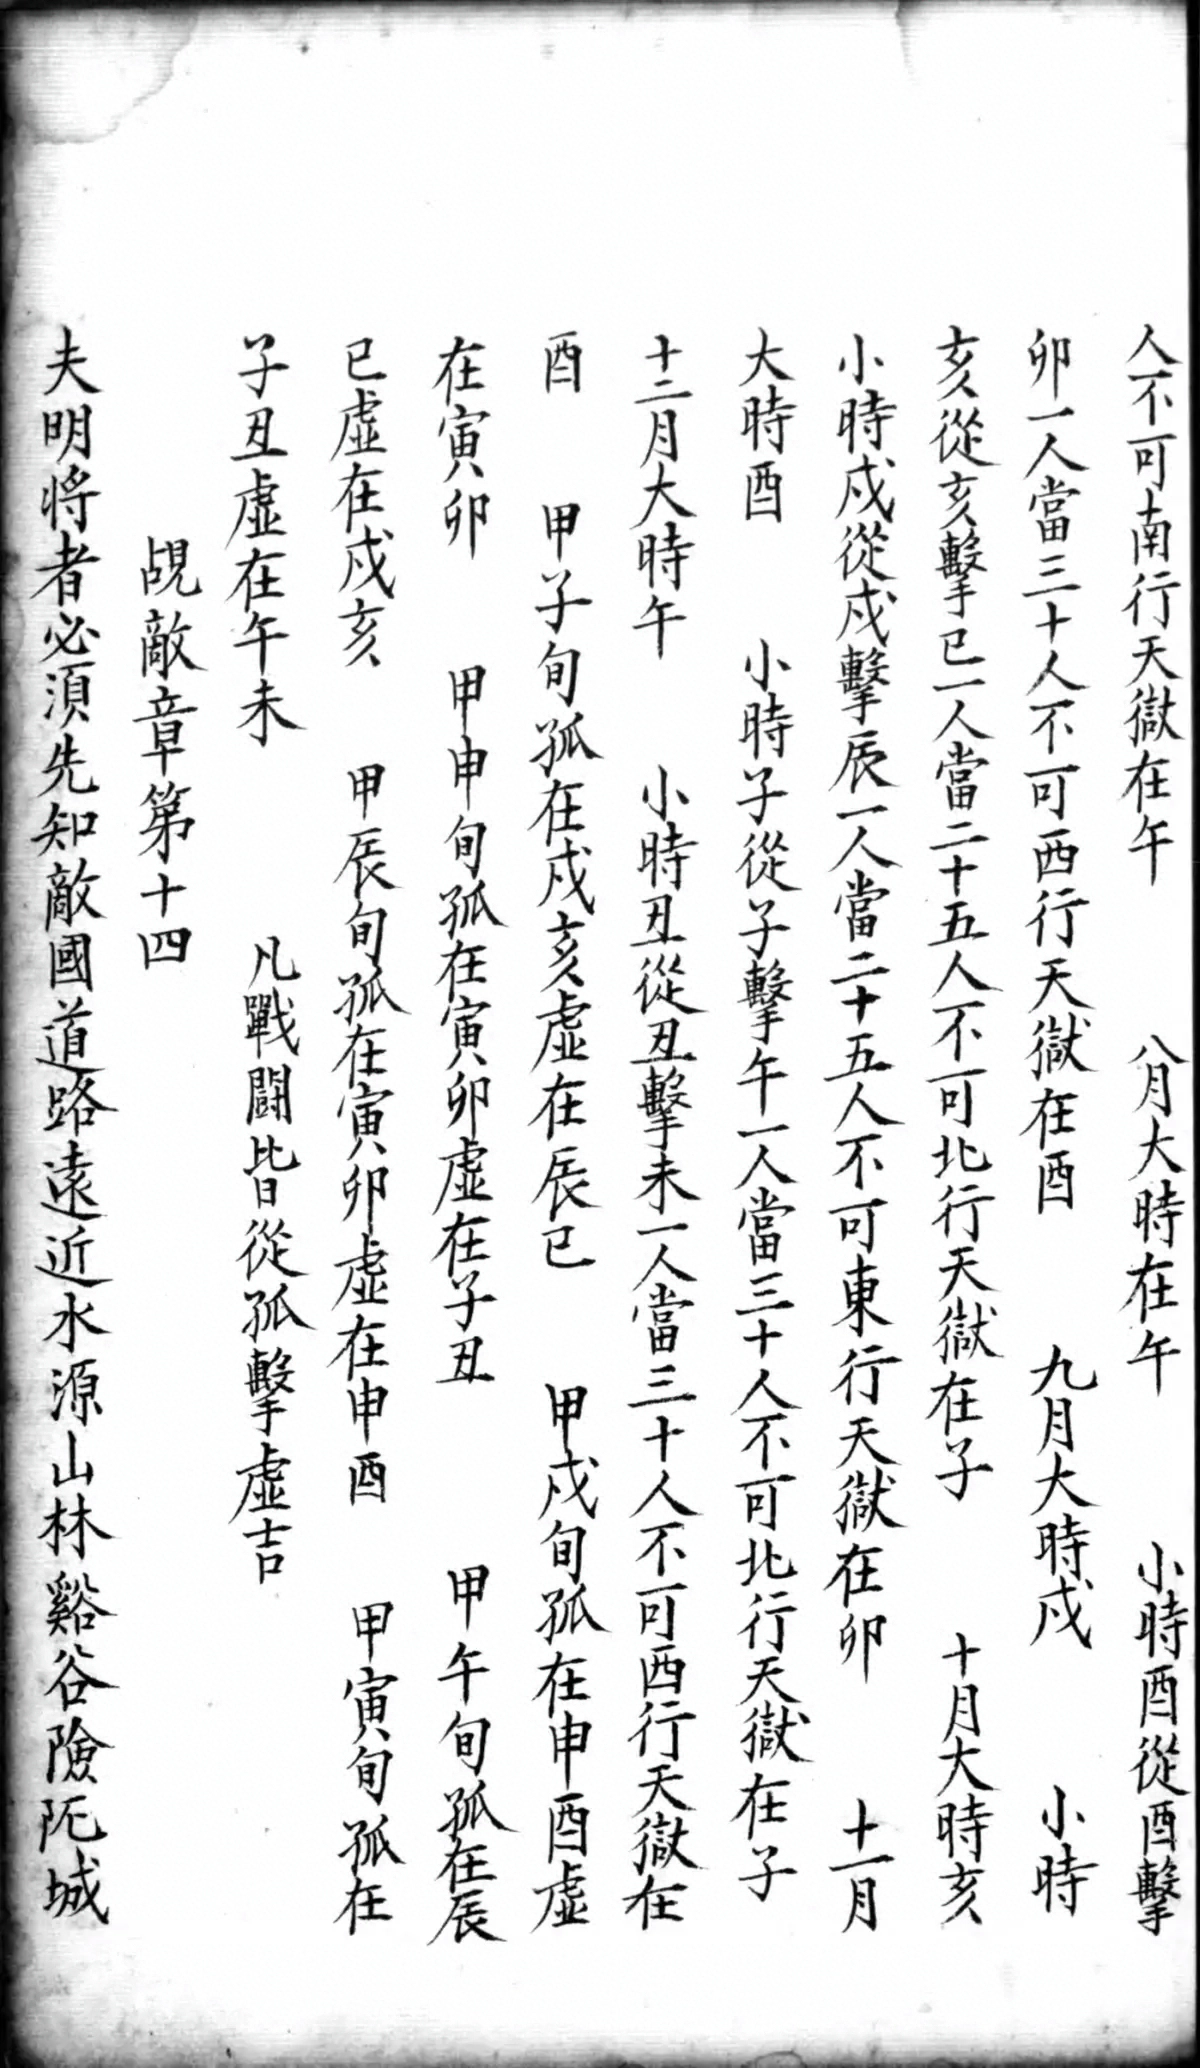 人不可南行天獄在午　八月大時在午　小時酉從酉擊
卯一人當三十人不可西行天獄在酉　九月大時戍　小時
亥從亥擊巳一人當二十五人不可北行天獄在子　十月大時亥
小時戍從戍擊辰一人當二十五人不可東行天獄在卯　十一月
大時酉　小時子從子擊午一人當三十人不可北行天獄在子
十二月大時午　小時丑從丑擊未一人當三十人不可西行天獄在
酉　甲子旬孤在戍亥虛在辰巳　甲戍旬孤在申酉虛
在寅卯　甲申旬孤在寅卯虛在子丑　甲午旬孤在辰
巳虛在戍亥　甲辰旬孤在寅卯虛在申酉　甲寅旬孤在
子丑虛在午未　凡戰鬪皆從孤擊虛吉
覘敵章第十四
夫明将者必須先知敵國道路遠近水源山林谿谷險阨城